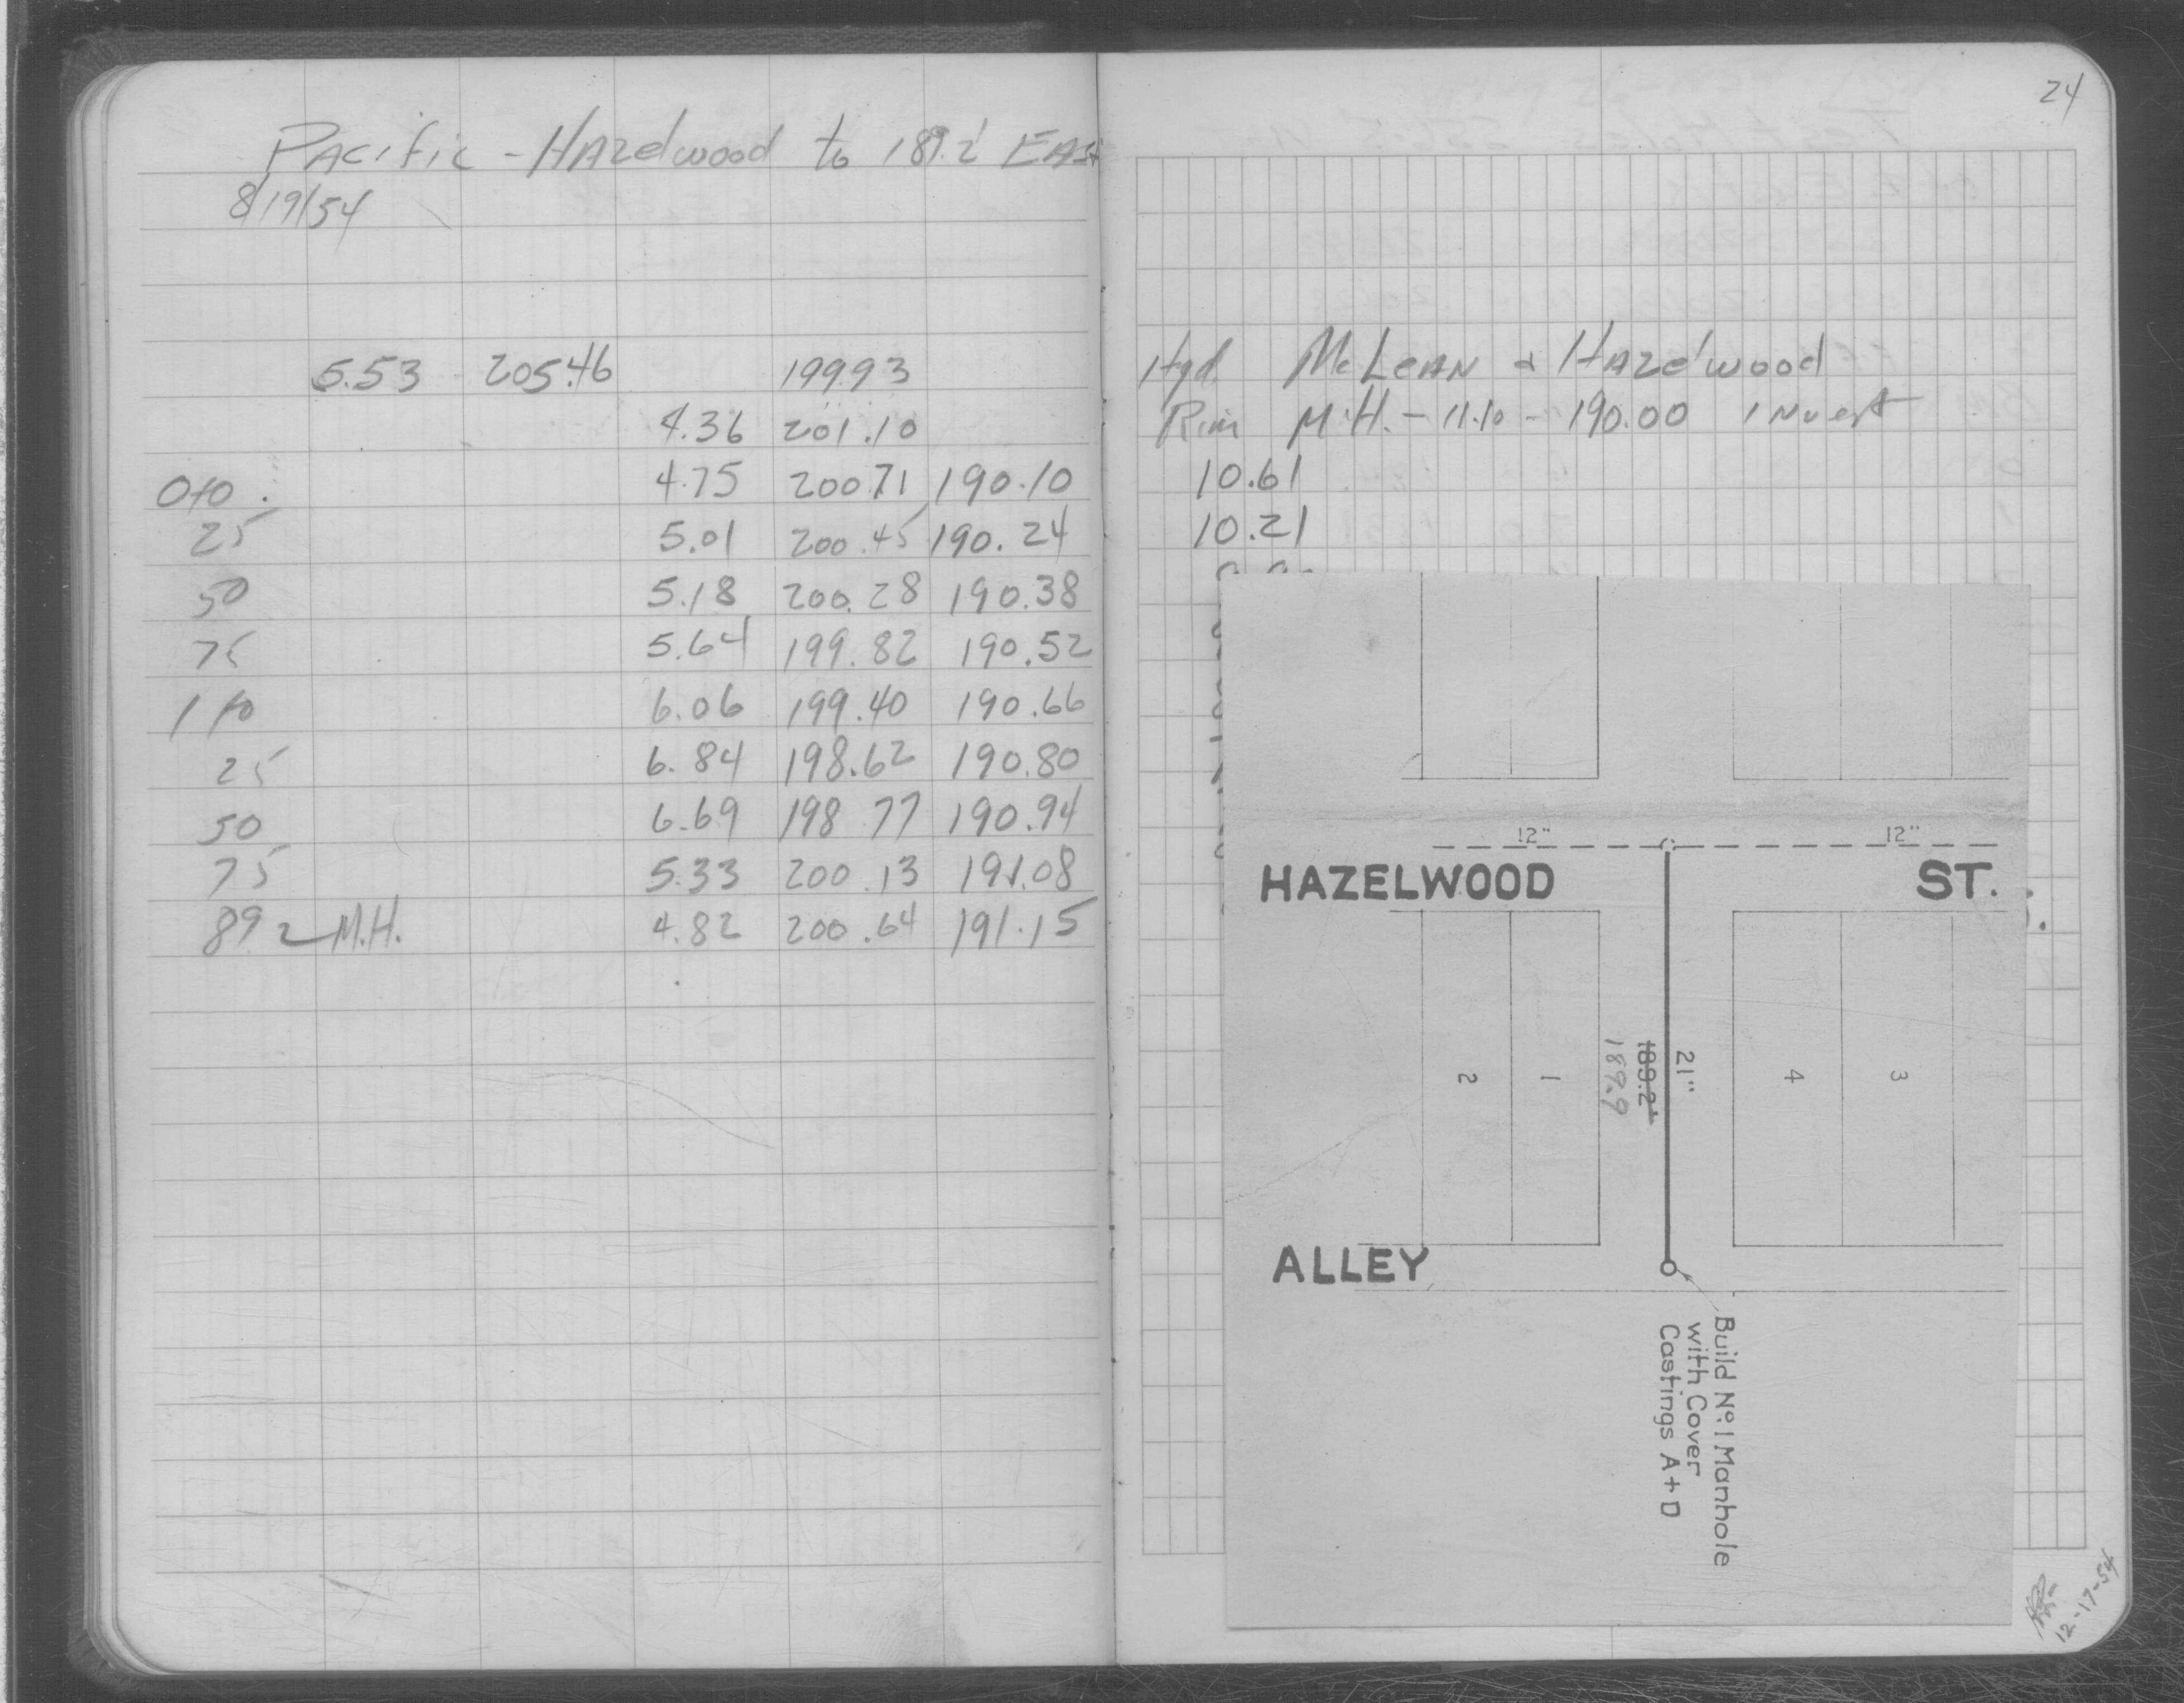 Pacific - Hazelwood to 189.2' East
8/19/54
5.53 205.46 199.93
4.36 201.10
0+0 4.75 200.71 190.10
25 5.01 200.45 190.24
50 5.18 200.28 190.38
75 5.64 199.82 190.52
1+0 6.06 199.40 190.66
25 6.84 198.62 190.80
50 6.69 198.77 190.94
75 5.33 200.13 191.08
89.2 M.H. 4.82 200.64 191.15
24
Hyd. McLean & Hazelwood
Rim M.H. - 11.10 - 190.00 Invert
10.61
10.21
12" 12"
HAZELWOOD ST.
2 1 4 3
21"
189.2'
189.9
ALLEY
Build No. 1 Manhole
with Cover
Castings A+D
12-17-54